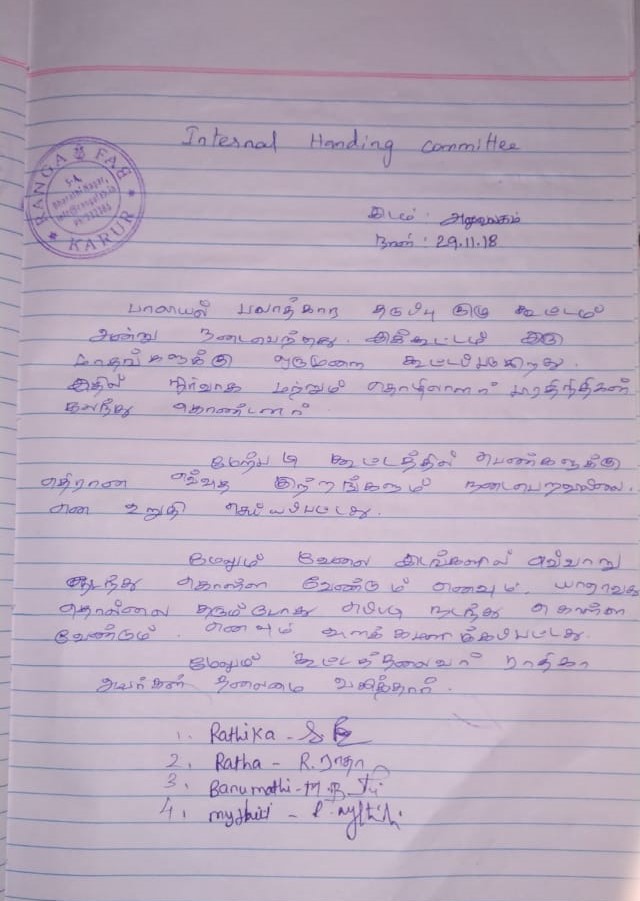 Internal Handing committee
RANGA FAB
KARUR
இடம் : அலுவலகம்
நாள் : 29.11.18
பாலியல் பலாத்கார தடுப்பு குழு கூட்டம்
அன்று நடைபெற்றது. இக்கூட்டம் இரு
மாதங்களுக்கு ஒருமுறை கூட்டப்படுகிறது.
இதில் நிர்வாக மற்றும் தொழிலாளர் பிரதிநிதிகள்
கலந்து கொண்டனர்
மேற்படி கூட்டத்தில் பெண்களுக்கு
எதிரான எவ்வித குற்றங்களும் நடைபெறவில்லை.
என உறுதி செய்யப்பட்டது.
மேலும் வேலை இடங்களில் எவ்வாறு
நடந்து கொள்ள வேண்டும் எனவும். யாராவது
தொல்லை தரும்போது எப்படி நடந்து கொள்ள
வேண்டும். எனவும் அளக்கமளிக்கப்பட்டது.
மேலும் கூட்டத்தலைவர் ராதிகா
அவர்கள் தலைமை வகித்தார்.
1. Rathika -
2. Ratha - R. ராதா
3. Banumathi - M.B
4. mythili -